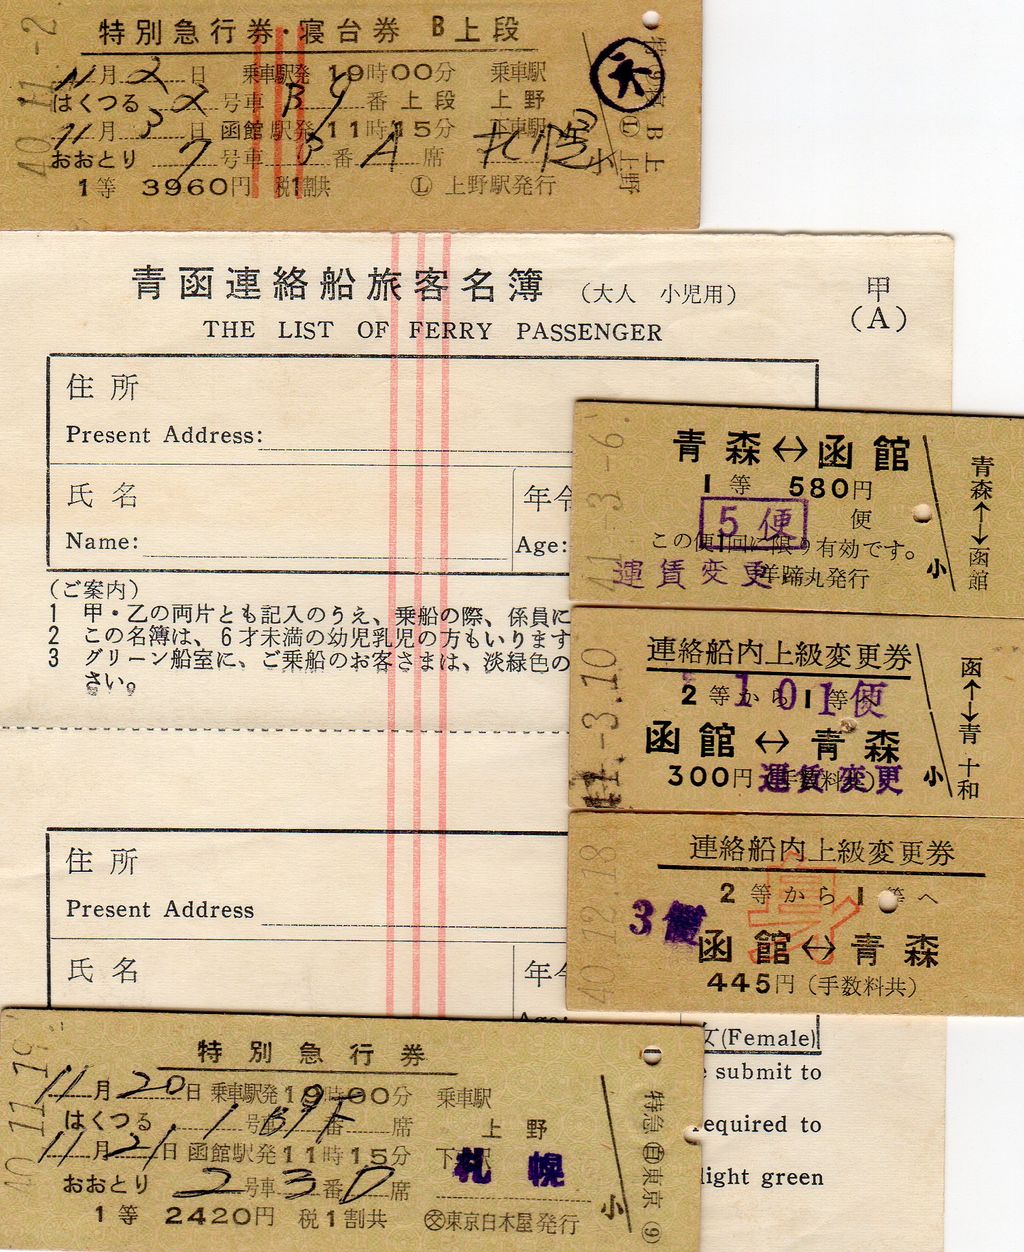 特別急行券・寝台券 B上段
11月2日 乗車駅発19時00分 乗車駅
はくつる 2号車 B9番上段 上野
11月3日 函館駅発11時15分 下車駅
おおとり 7号車 3番 A席 札幌
1等 3960円 税1割共 Ⓛ上野駅発行
小
40.11.-2
B上
Ⓛ上野
青函連絡船旅客名簿 (大人 小児用)
甲
(A)
THE LIST OF FERRY PASSENGER
住所
Present Address:
氏名
年令
Name:
Age:
(ご案内)
1 甲・乙の両片とも記入のうえ、乗船の際、係員に
2 この名簿は、6才未満の幼児乳児の方もいります
3 グリーン船室に、ご乗船のお客さまは、淡緑色の
さい。
住所
Present Address
氏名
年令
女(Female)
e submit to
required to
light green
41.-3.-6.
青森↔函館
1等 580円
便
5便
この便1回に限り有効です。
運賃変更
羊蹄丸発行
小
青森↔函館
-3.10
連絡船内上級変更券
2等から1等へ
101便
函館↔青森
300円(手数料共)
運賃変更
小
函↔青 十和
40.12.18
連絡船内上級変更券
2等から1等へ
3便
函館↔青森
445円(手数料共)
40.11.19
特別急行券
11月20日 乗車駅発19時00分 乗車駅
はくつる 1号車 B9番F席 上野
11月21日 函館駅発11時15分 下車駅 札幌
おおとり 2号車 3番D席
1等 2420円 税1割共 ㊋東京日本屋発行
小
特急 自東京 (9)